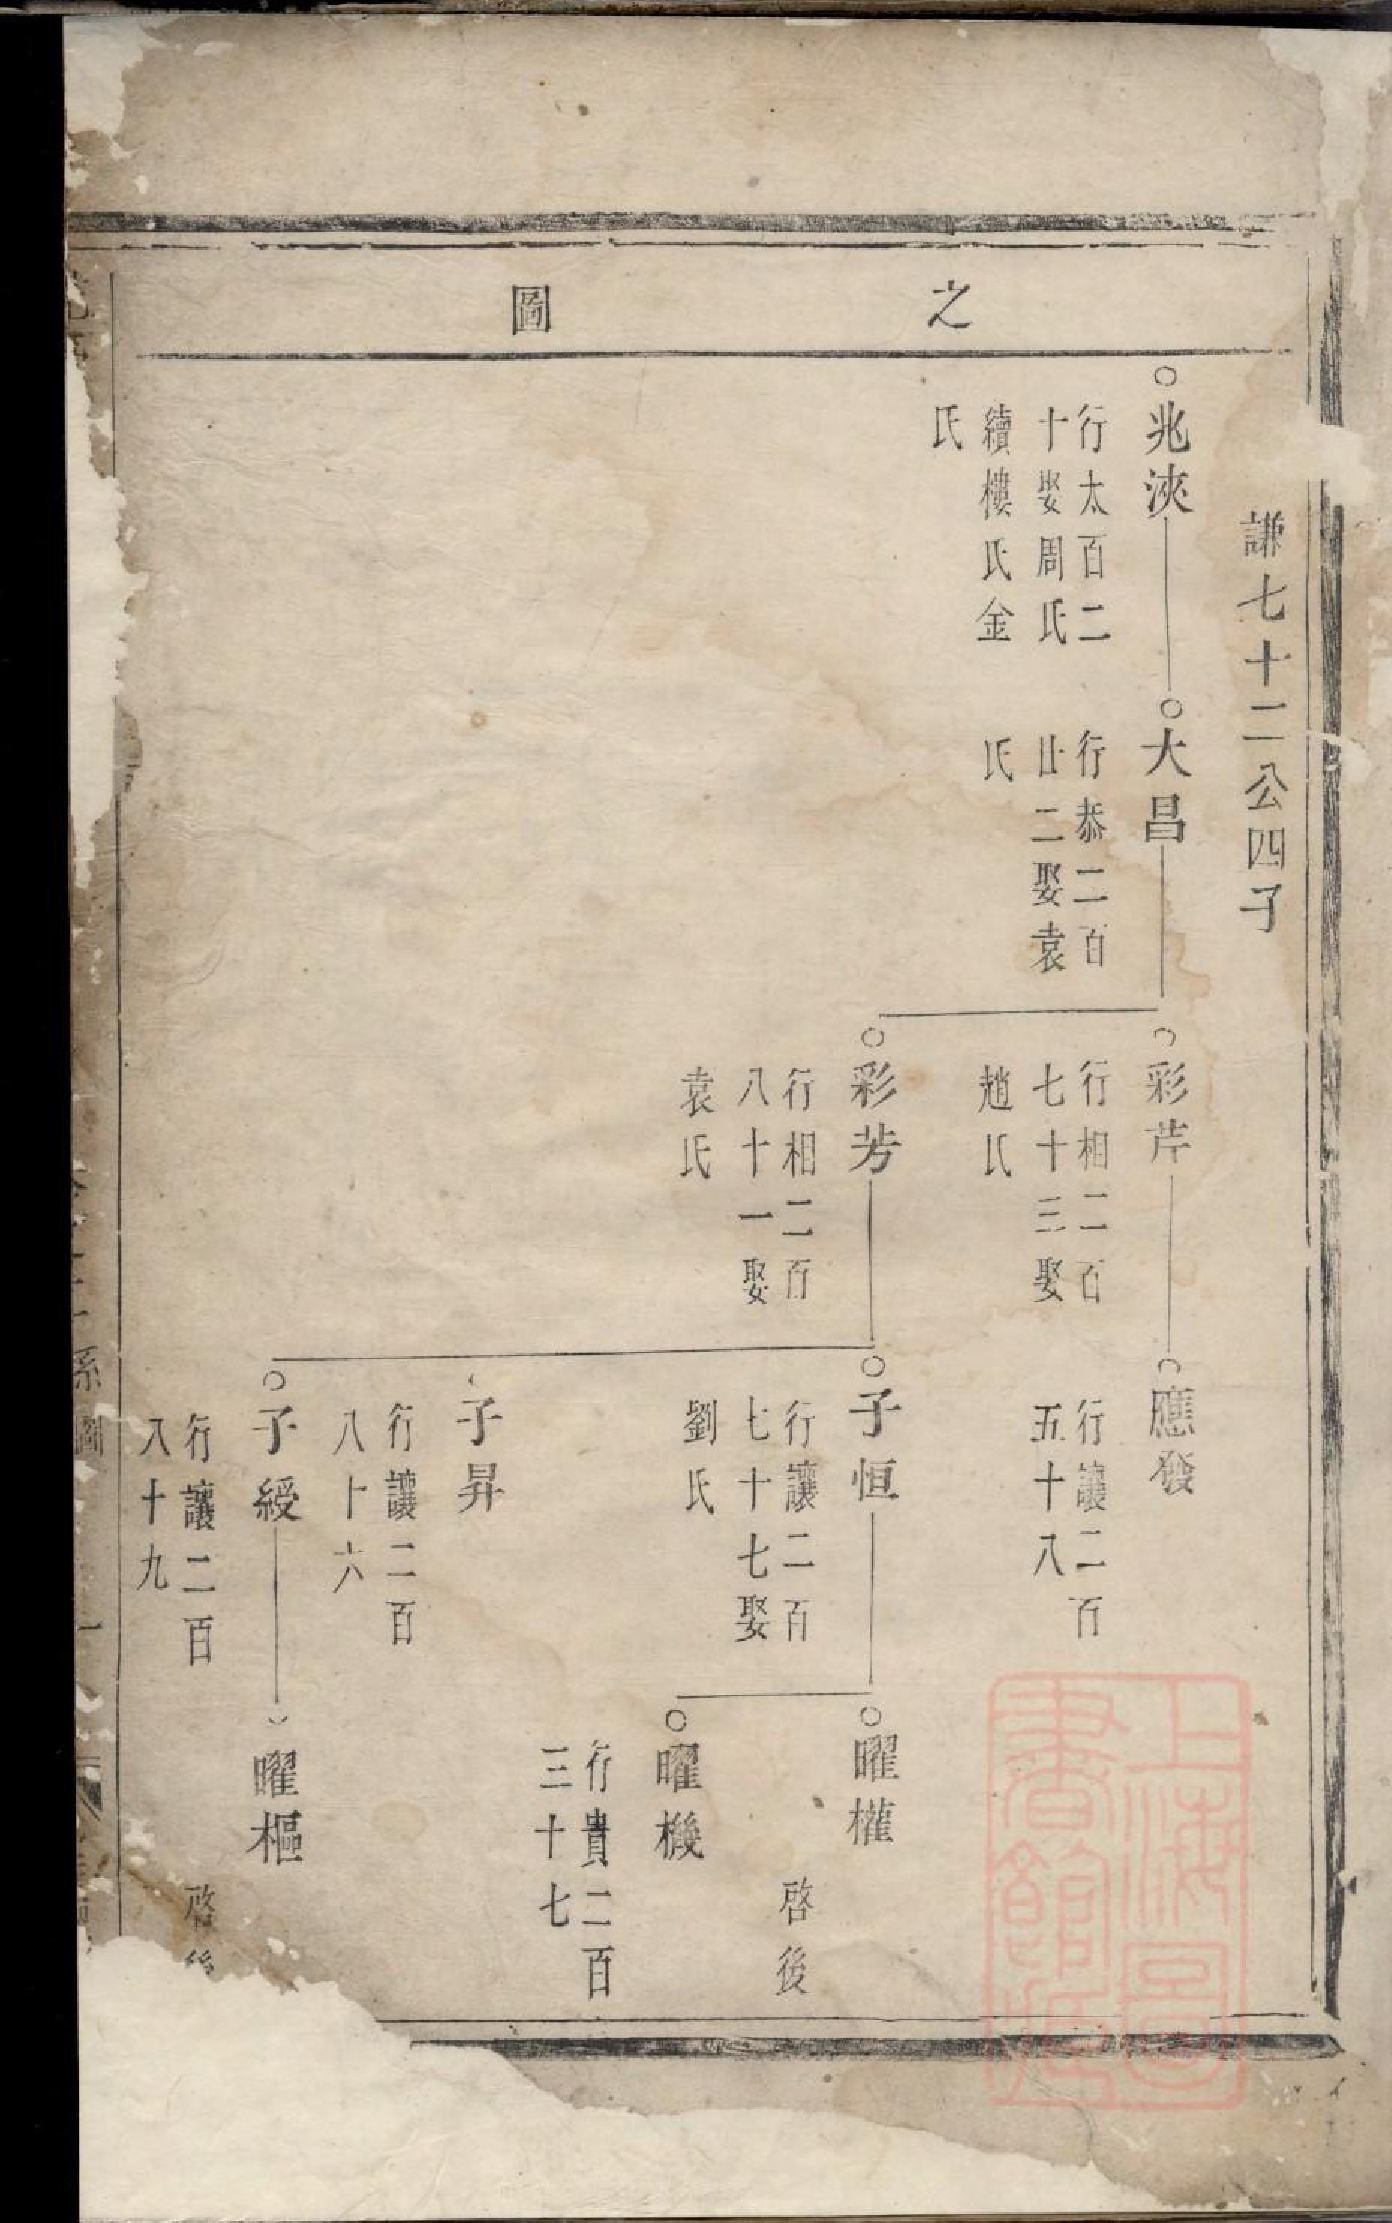 之圖
謙七十二公四子
兆浹
行太百二
十娶周氏
續樓氏金
氏
大昌
行恭二百
廿二娶袁
氏
彩芹
行相二百
七十三娶
趙氏
應發
行讓二百
五十八
彩芳
行相二百
八十一娶
袁氏
子恒
行讓二百
七十七娶
劉氏
曜權
啓後
曜機
行貴二百
三十七
子昇
行讓二百
八十六
子綬
行讓二百
八十九
曜樞
啓後
系圖
上海圖書館藏